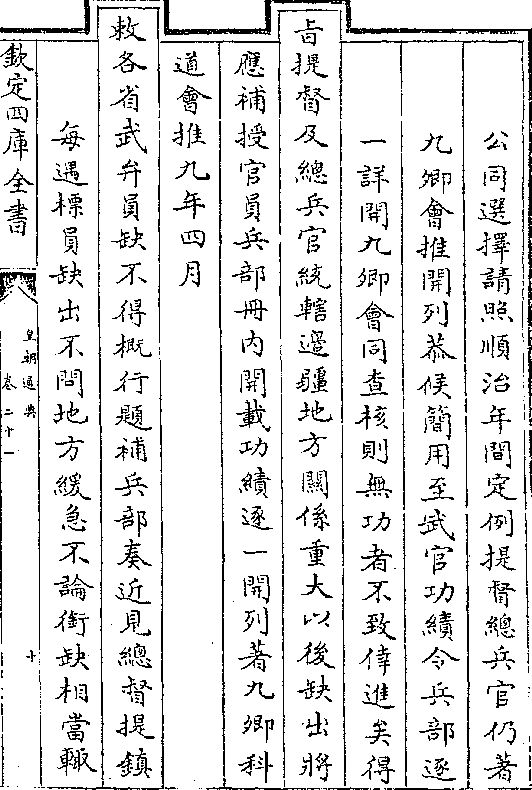 公同選擇請照順治年間定例提督總兵官仍著
九卿會推開列恭候簡用至武官功績令兵部逐
一詳開九卿會同查核則無功者不致倖進矣得
旨提督及總兵官統轄邊疆地方關係重大以後缺出將
應補授官員兵部冊内開載功績逐一開列著九卿科
道會推九年四月
敕各省武弁員缺不得概行題補兵部奏近見總督提鎮
每遇標員缺出不問地方緩急不論銜缺相當輒
欽定四庫全書
皇朝通典
卷二十一
十